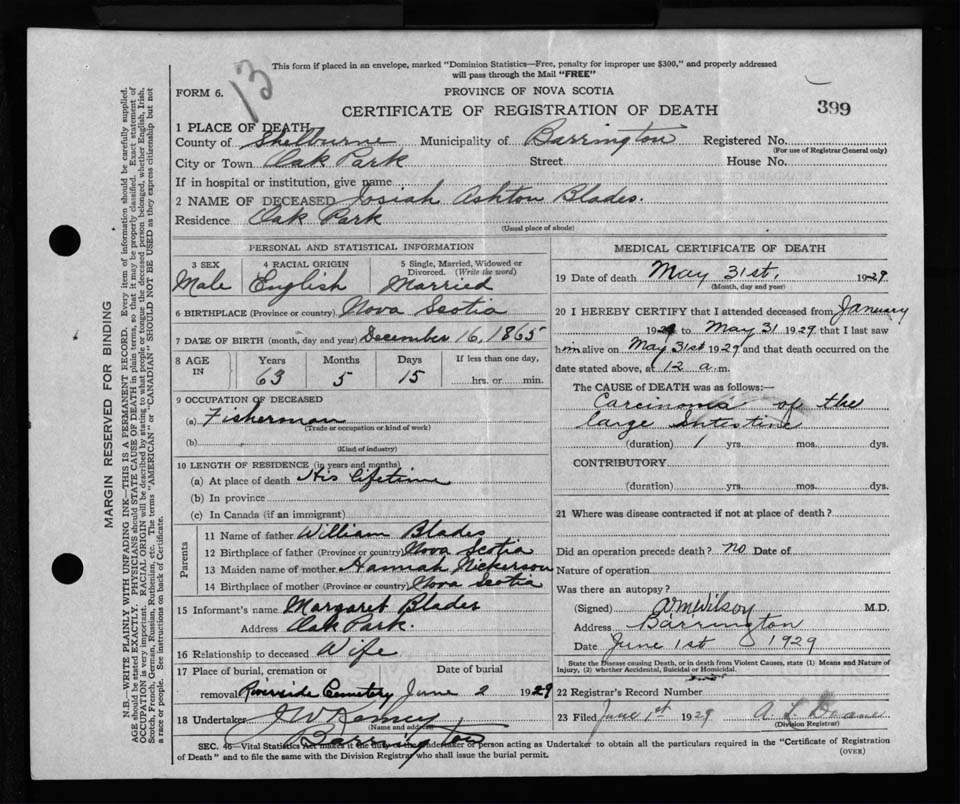 13
This form if placed in an envelope, marked "Dominion Statistics—Free, penalty for improper use $300," and properly addressed
will pass through the Mail "FREE"
FORM 6.
PROVINCE OF NOVA SCOTIA
CERTIFICATE OF REGISTRATION OF DEATH
399
1 PLACE OF DEATH
County of Shelburne Municipality of Barrington Registered No.
(For use of Registrar General only)
City or Town Oak Park Street House No.
If in hospital or institution, give name
2 NAME OF DECEASED Josiah Ashton Blades.
Residence Oak Park
(Usual place of abode)
PERSONAL AND STATISTICAL INFORMATION
3 SEX 4 RACIAL ORIGIN 5 Single, Married, Widowed or
Divorced. (Write the word)
Male English Married
6 BIRTHPLACE (Province or country) Nova Scotia
7 DATE OF BIRTH (month, day and year) December 16, 1865
8 AGE IN Years Months Days If less than one day,
63 5 15 hrs. or min.
9 OCCUPATION OF DECEASED
(a) Fisherman
(Trade or occupation or kind of work)
(b)
(Kind of industry)
10 LENGTH OF RESIDENCE (in years and months)
(a) At place of death His Lifetime
(b) In province
(c) In Canada (if an immigrant)
Parents
11 Name of father William Blades
12 Birthplace of father (Province or country) Nova Scotia
13 Maiden name of mother Hannah Nickerson
14 Birthplace of mother (Province or country) Nova Scotia
15 Informant's name Margaret Blades
Address Oak Park.
16 Relationship to deceased Wife
17 Place of burial, cremation or Date of burial
removal Riverside Cemetery June 2 1929
18 Undertaker J W Kenney
(Name and address)
Barrington
MEDICAL CERTIFICATE OF DEATH
19 Date of death May 31st, 1929
(Month, day and year)
20 I HEREBY CERTIFY that I attended deceased from January
1929 to May 31 1929 that I last saw
him alive on May 31st 1929 and that death occurred on the
date stated above, at 12 a.m.
The CAUSE OF DEATH was as follows:—
Carcinoma of the
large Intestine
(duration) 1 yrs. mos. dys.
CONTRIBUTORY
(duration) yrs. mos. dys.
21 Where was disease contracted if not at place of death?
Did an operation precede death? no Date of
Nature of operation
Was there an autopsy?
(Signed) W M Wilson M.D.
Address Barrington
Date June 1st 1929
State the Disease causing Death, or in death from Violent Causes, state (1) Means and Nature of
Injury, (2) whether Accidental, Suicidal or Homicidal.
22 Registrar's Record Number
23 Filed June 1st 1929 A. L.
(Division Registrar)
SEC. 46—Vital Statistics Act makes it the duty of the undertaker or person acting as Undertaker to obtain all the particulars required in the "Certificate of Registration
of Death" and to file the same with the Division Registrar who shall issue the burial permit.
(OVER)
MARGIN RESERVED FOR BINDING
N.B.—WRITE PLAINLY WITH UNFADING INK—THIS IS A PERMANENT RECORD. Every item of information should be carefully supplied.
AGE should be stated EXACTLY. PHYSICIANS should STATE CAUSE OF DEATH in plain terms, so that it may be properly classified. Exact statement of
OCCUPATION is very important. RACIAL ORIGIN will be described by stating to what people or tongue the deceased person belonged, whether English, Irish,
Scotch, French, German, Russian, Ruthenian, etc. The terms "AMERICAN" or "CANADIAN" SHOULD NOT BE USED as they express citizenship but not
a race or people. See instructions on back of Certificate.